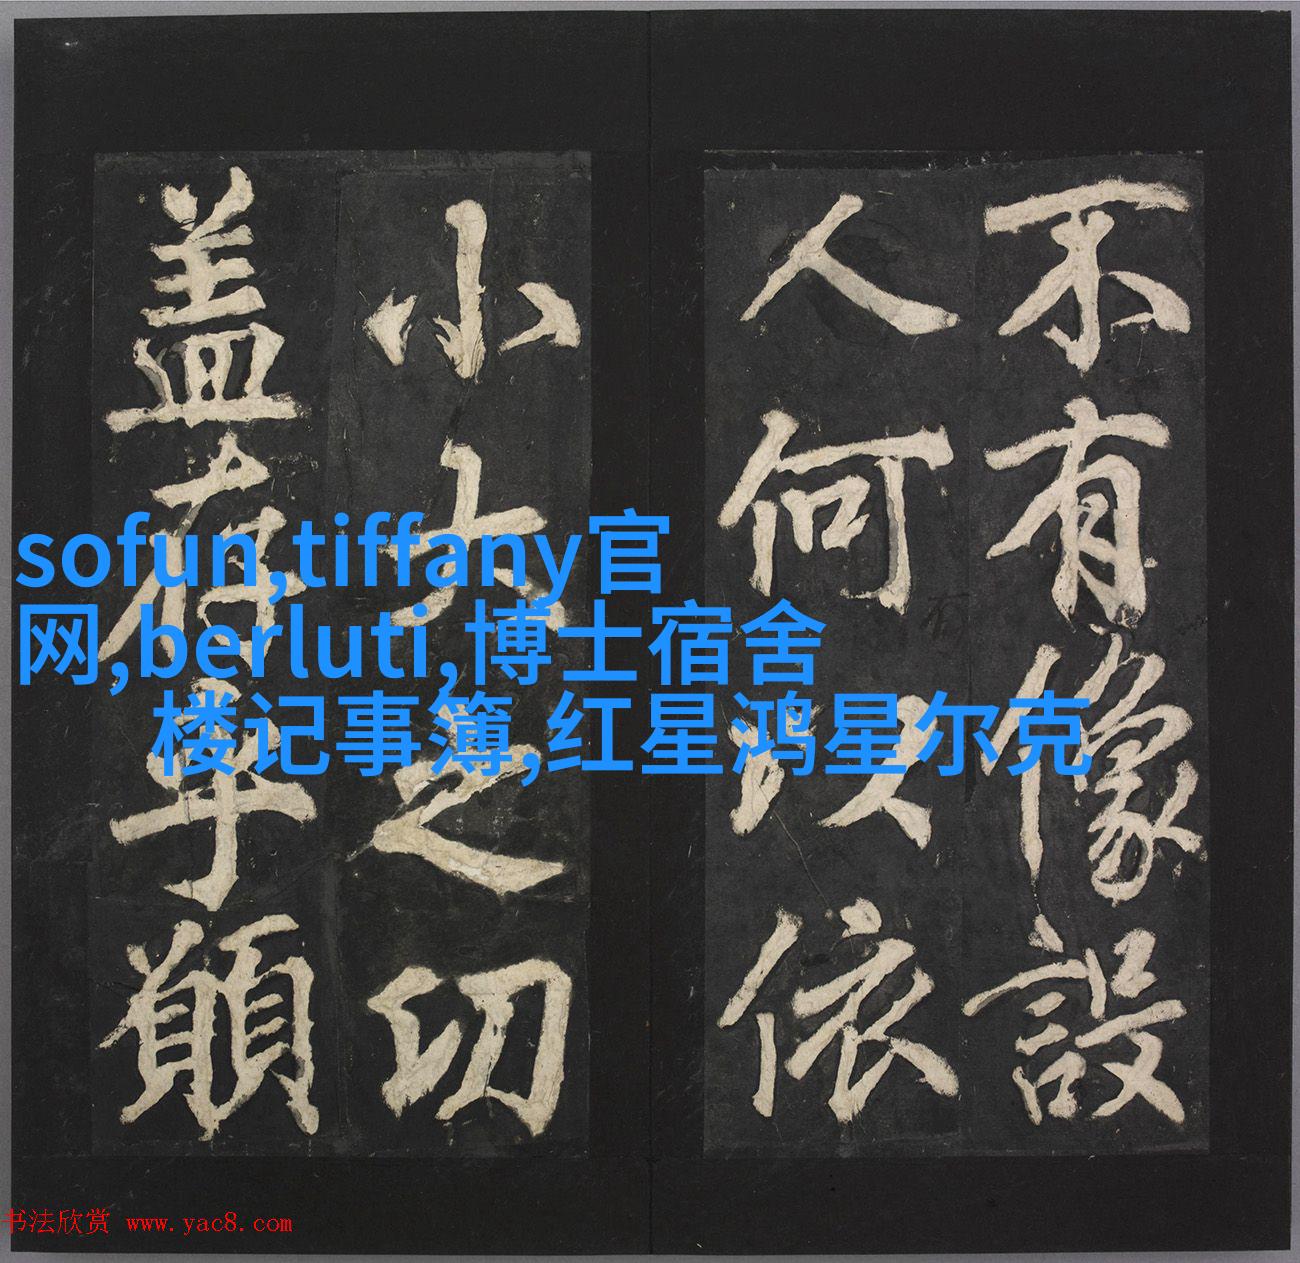 不有像設
人何以依
小大之切
盖存乎願
sofun,tiffany官
网,berluti,博士宿舍
楼记事簿,红星鸿星尔克
书法欣赏 www.yac8.com